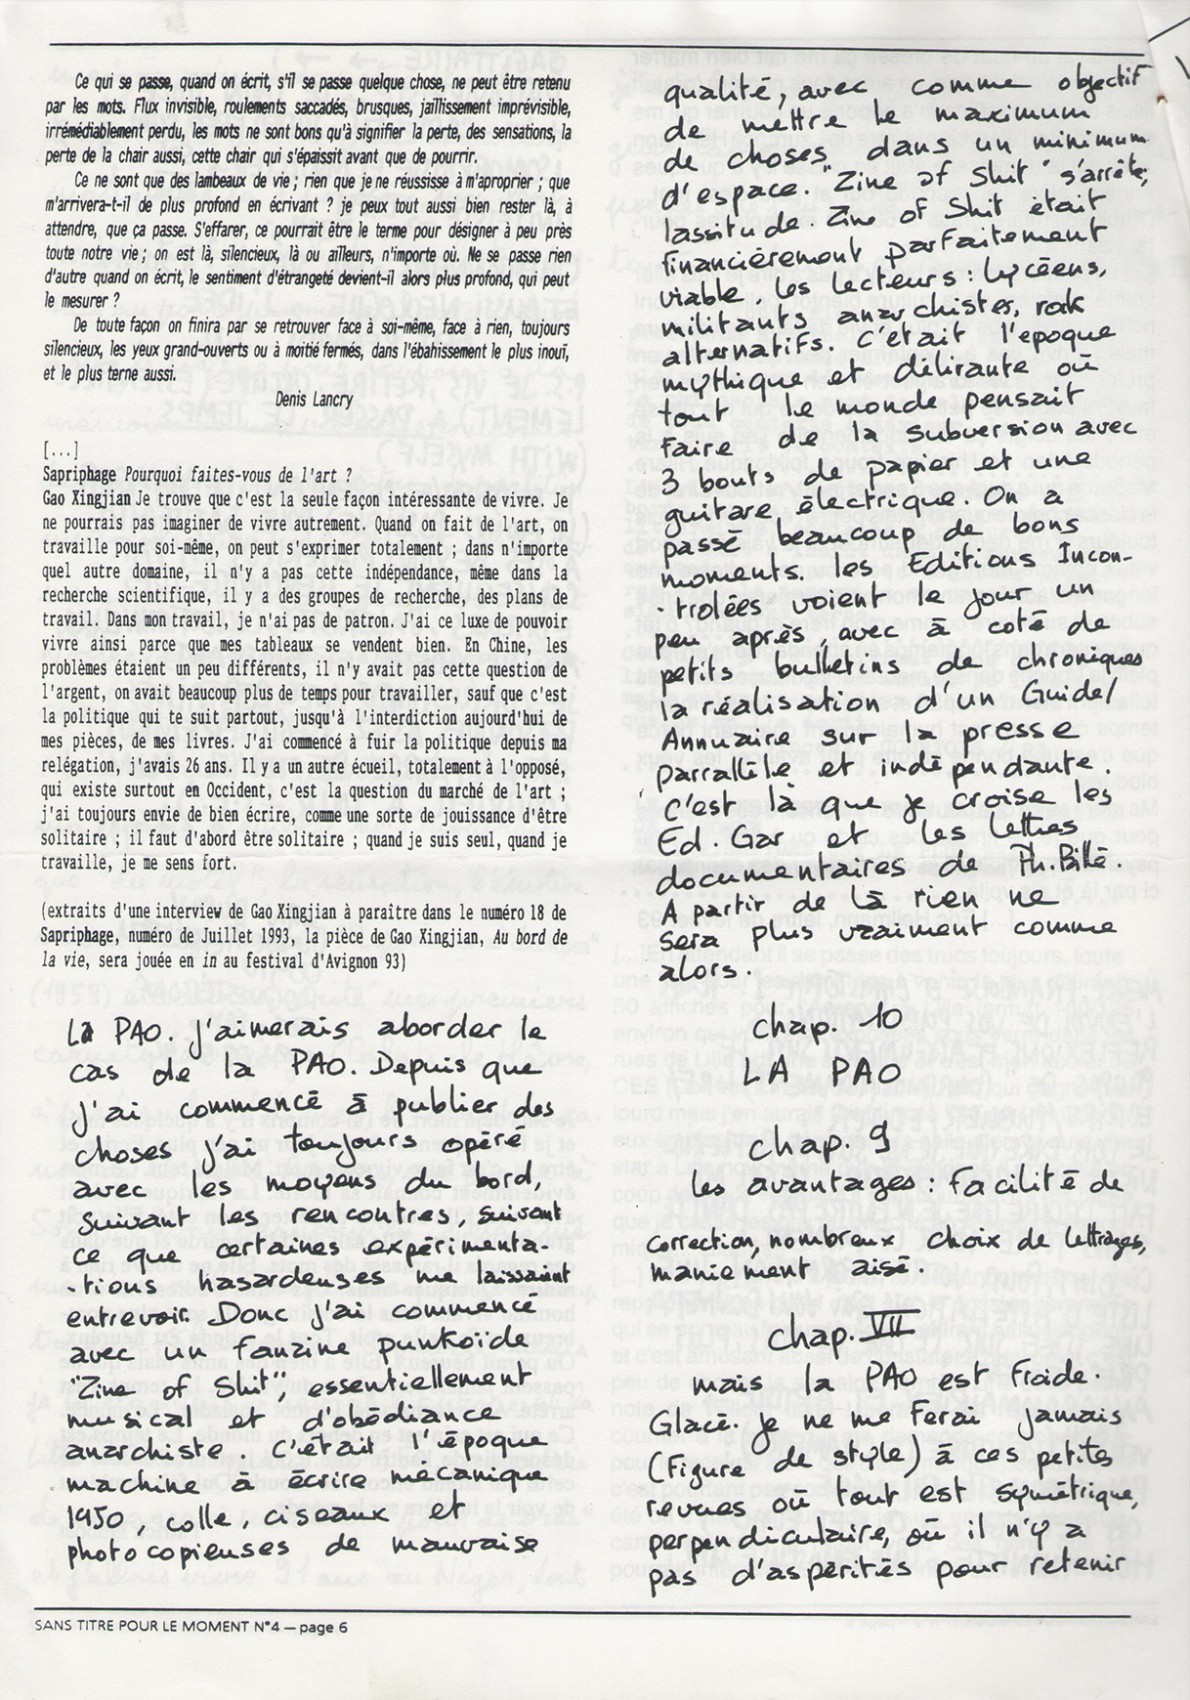 Ce qui se passe, quand on écrit, s'il se passe quelque chose, ne peut être retenu
par les mots. Flux invisible, roulements saccadés, brusques, jaillissement imprévisible,
irrémédiablement perdu, les mots ne sont bons qu'à signifier la perte, des sensations, la
perte de la chair aussi, cette chair qui s'épaissit avant que de pourrir.
Ce ne sont que des lambeaux de vie ; rien que je ne réussisse à m'aproprier ; que
m'arrivera-t-il de plus profond en écrivant ? je peux tout aussi bien rester là, à
attendre, que ça passe. S'effarer, ce pourrait être le terme pour désigner à peu près
toute notre vie ; on est là, silencieux, là ou ailleurs, n'importe où. Ne se passe rien
d'autre quand on écrit, le sentiment d'étrangeté devient-il alors plus profond, qui peut
le mesurer ?
De toute façon on finira par se retrouver face à soi-même, face à rien, toujours
silencieux, les yeux grand-ouverts ou à moitié fermés, dans l'ébahissement le plus inouï,
et le plus terne aussi.
Denis Lancry
[...]
Sapriphage Pourquoi faites-vous de l'art ?
Gao Xingjian Je trouve que c'est la seule façon intéressante de vivre. Je
ne pourrais pas imaginer de vivre autrement. Quand on fait de l'art, on
travaille pour soi-même, on peut s'exprimer totalement ; dans n'importe
quel autre domaine, il n'y a pas cette indépendance, même dans la
recherche scientifique, il y a des groupes de recherche, des plans de
travail. Dans mon travail, je n'ai pas de patron. J'ai ce luxe de pouvoir
vivre ainsi parce que mes tableaux se vendent bien. En Chine, les
problèmes étaient un peu différents, il n'y avait pas cette question de
l'argent, on avait beaucoup plus de temps pour travailler, sauf que c'est
la politique qui te suit partout, jusqu'à l'interdiction aujourd'hui de
mes pièces, de mes livres. J'ai commencé à fuir la politique depuis ma
relégation, j'avais 26 ans. Il y a un autre écueil, totalement à l'opposé,
qui existe surtout en Occident, c'est la question du marché de l'art ;
j'ai toujours envie de bien écrire, comme une sorte de jouissance d'être
solitaire ; il faut d'abord être solitaire ; quand je suis seul, quand je
travaille, je me sens fort.
(extraits d'une interview de Gao Xingjian à paraître dans le numéro 18 de
Sapriphage, numéro de Juillet 1993, la pièce de Gao Xingjian, Au bord de
la vie, sera jouée en in au festival d'Avignon 93)
La PAO. J'aimerais aborder le
cas de la PAO. Depuis que
j'ai commencé à publier des
choses j'ai toujours opéré
avec les moyens du bord,
suivant les rencontres, suivant
ce que certaines expérimenta-
-tions hasardeuses me laissaient
entrevoir. Donc j'ai commencé
avec un fanzine punkoïde
"Zine of Shit", essentiellement
musical et d'obédiance
anarchiste. C'était l'époque
machine à écrire mécanique
1950, colle, ciseaux et
photocopieuses de mauvaise
qualité, avec comme objectif
de mettre le maximum
de choses dans un minimum
d'espace. "Zine of Shit" s'arrête,
lassitude. Zine of Shit était
financièrement parfaitement
viable. Les lecteurs : lycéens,
militants anarchistes, rock
alternatifs. C'était l'epoque
mythique et délirante où
tout le monde pensait
faire de la subversion avec
3 bouts de papier et une
guitare électrique. On a
passé beaucoup de bons
moments. Les Editions Incon-
-trolées voient le jour un
peu après, avec à coté de
petits bulletins de chroniques
la réalisation d'un Guide/
Annuaire sur la presse
parrallèle et indépendante.
C'est là que je croise les
Ed. Gar et les lettres
documentaires de Ph. Billé.
A partir de là rien ne
sera plus vraiment comme
alors.
chap. 10
LA PAO
chap. 9
les avantages : facilité de
correction, nombreux choix de lettrages,
maniement aisé.
chap. VII
mais la PAO est froide.
Glacé. Je ne me ferai jamais
(figure de style) à ces petites
revues où tout est symétrique,
perpendiculaire, où il n'y a
pas d'asperités pour retenir
SANS TITRE POUR LE MOMENT N°4 — page 6